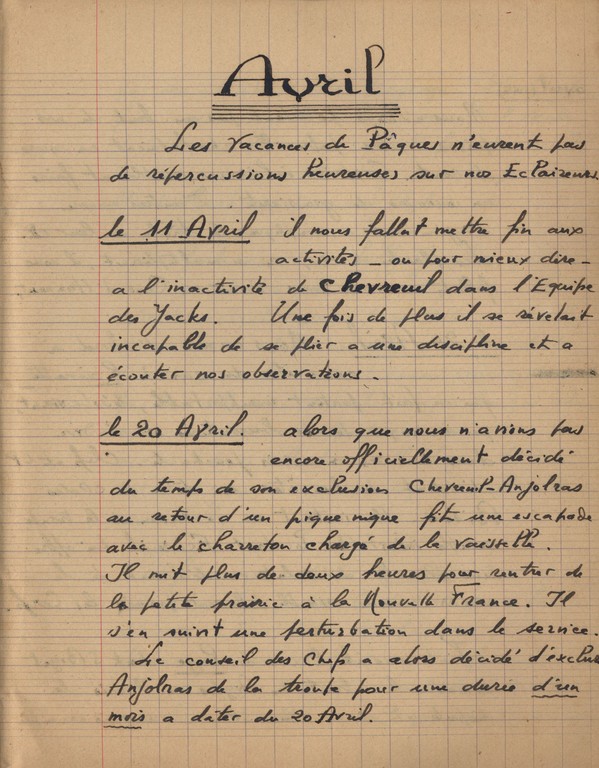 Avril
Les Vacances de Pâques n'eurent pas
de répercussions heureuses sur nos Eclaireurs.
le 11 Avril il nous fallut mettre fin aux
activités - ou pour mieux dire -
a l'inactivité de Chevreuil dans l'Equipe
des Yacks. Une fois de plus il se révélait
incapable de se plier a une discipline et a
écouter nos observations.
le 20 Avril. alors que nous n'avions pas
encore officiellement décidé
du temps de son exclusion Chevreuil-Anjolras
au retour d'un pique nique fit une escapade
avec le charreton chargé de la vaisselle.
Il mit plus de deux heures pour rentrer de
la petite prairie à la Nouvelle France. Il
s'en suivit une perturbation dans le service.
Le conseil des Chefs a alors décidé d'exclure
Anjolras de la troupe pour une durée d'un
mois a dater du 20 Avril.